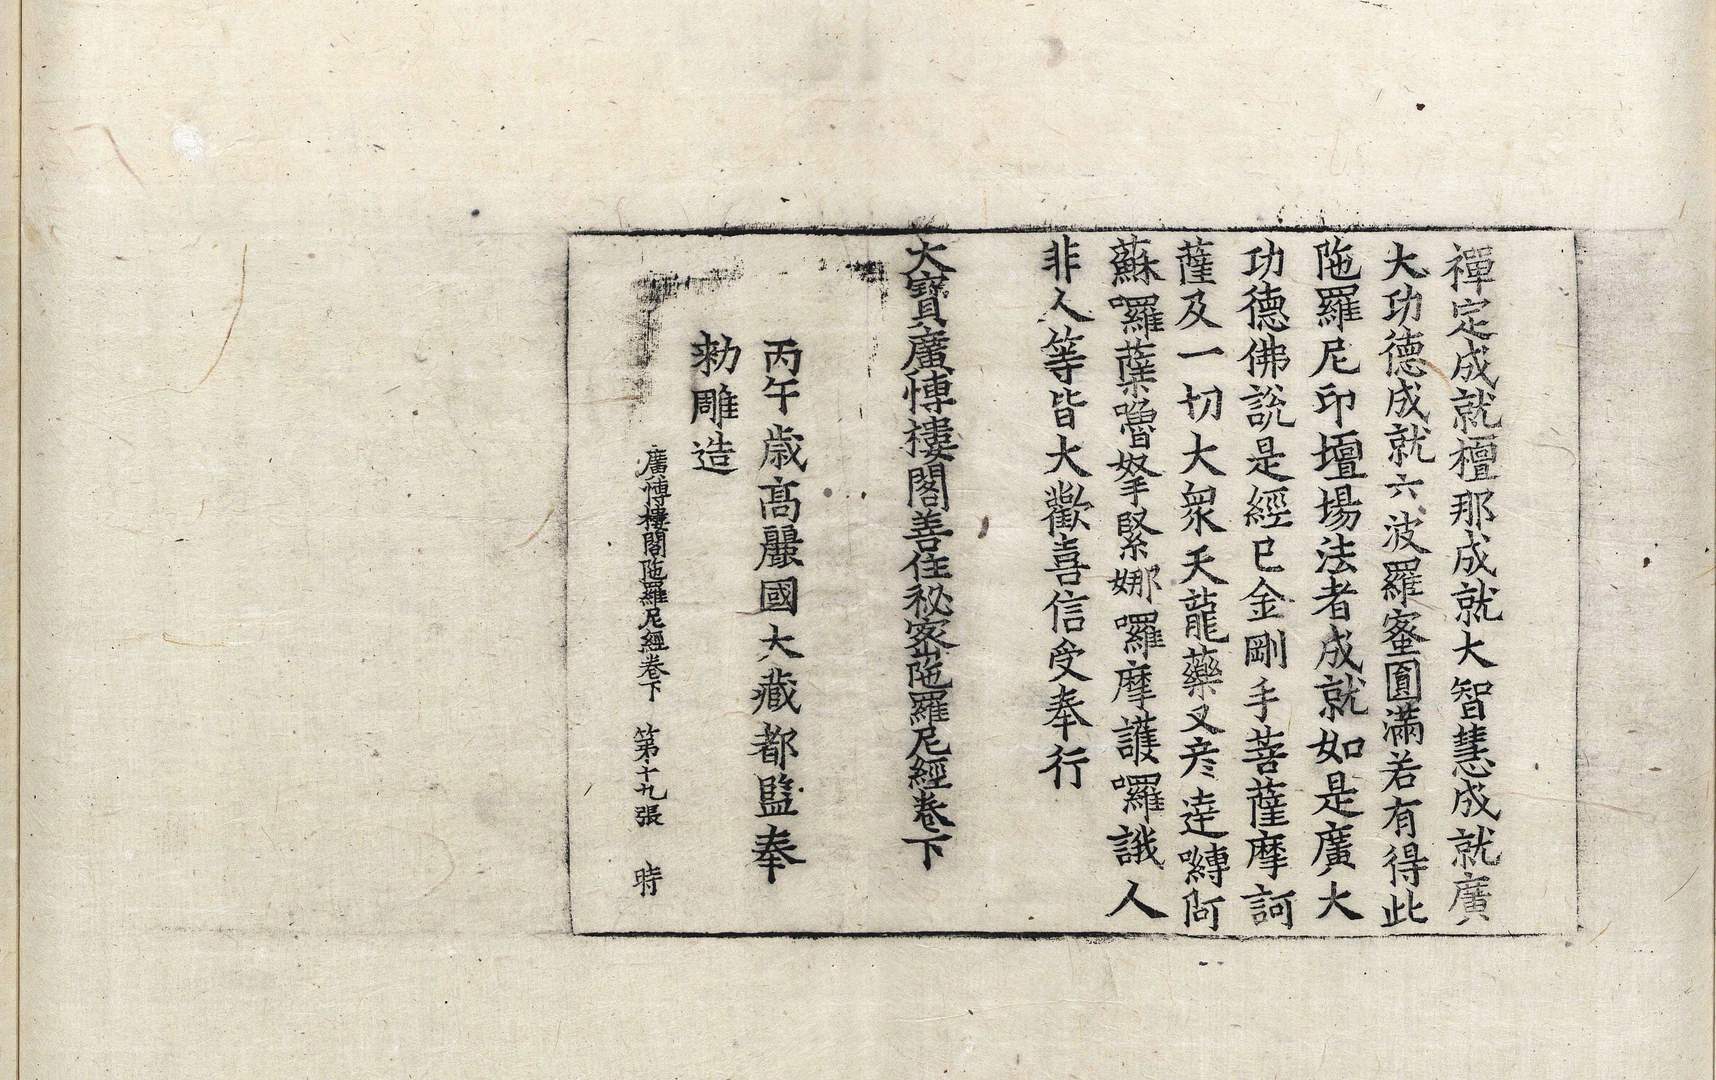 禪定成就檀那成就大智慧成就廣
大功德成就六波羅蜜圓滿若有得此
陁羅尼印壇場法者成就如是廣大
功德佛說是經已金剛手菩薩摩訶
薩及一切大衆天龍藥叉彦達嚩阿
蘇囉蘖嚕拏緊娜囉摩護囉誐人
非人等皆大歡喜信受奉行
大寶廣博樓閣善住秘密陁羅尼經卷下
丙午歲高麗國大藏都監奉
勑雕造
廣博樓閣陁羅尼經卷下 第十九張 時